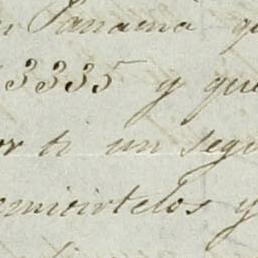 n Panamá q
3335 y que
or ti un segu
emitirtelos y